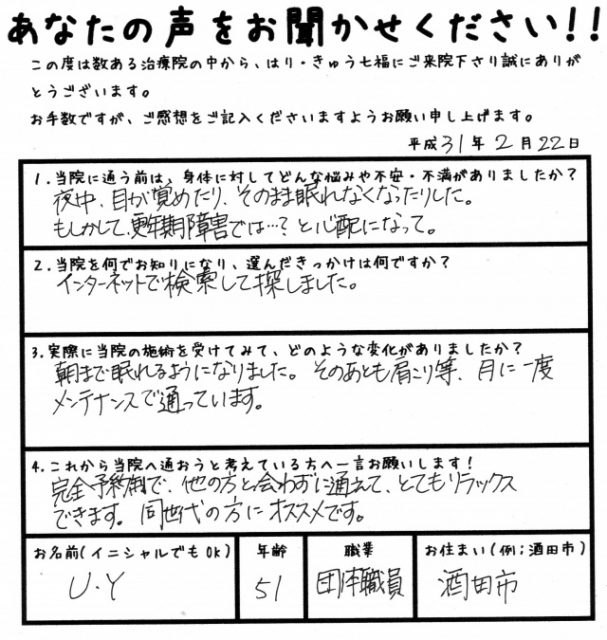 あなたの声をお聞かせください!!
この度は数ある治療院の中から、はり・きゅう七福にご来院下さり誠にありが
とうございます。
お手数ですが、ご感想をご記入くださいますようお願い申し上げます。
平成31年2月22日
1.当院に通う前は、身体に対してどんな悩みや不安・不満がありましたか?
夜中、目が覚めたり、そのまま眠れなくなったりした。
もしかして、更年期障害では…?と心配になって。
2.当院を何でお知りになり、選んだきっかけは何ですか?
インターネットで検索して探しました。
3.実際に当院の施術を受けてみて、どのような変化がありましたか?
朝まで眠れるようになりました。そのあとも肩こり等、月に一度
メンテナンスで通っています。
4.これから当院へ通おうと考えている方へ一言お願いします!
完全予約制で、他の方と会わずに通えて、とてもリラックス
できます。同世代の方にオススメです。
お名前(イニシャルでもOK) 年齢 職業 お住まい(例;酒田市)
U.Y 51 団体職員 酒田市